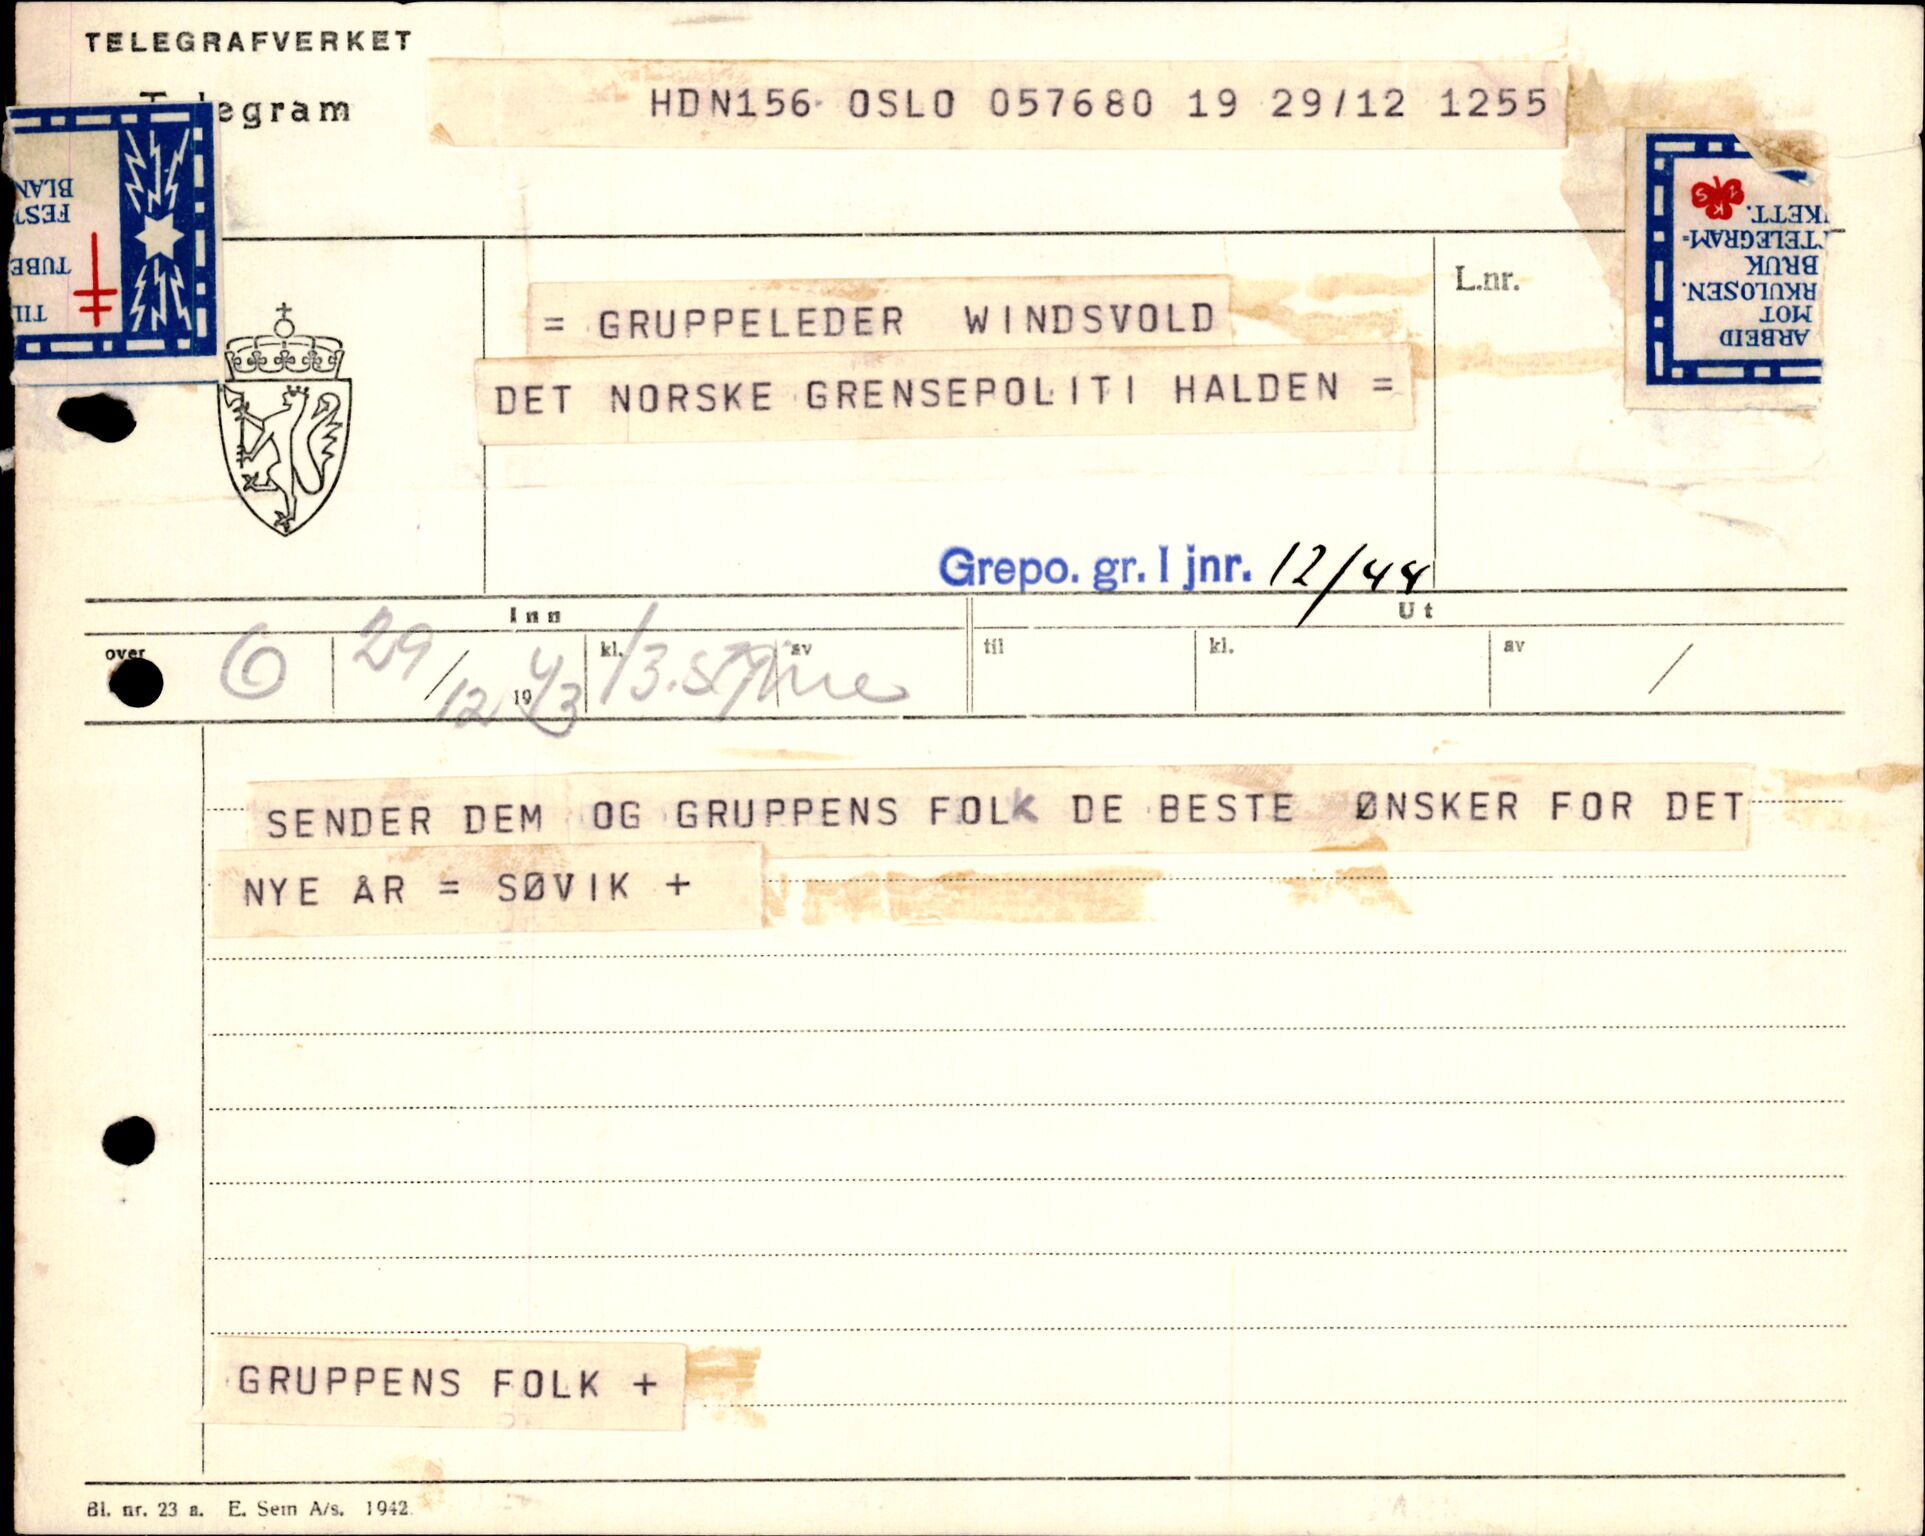 TELEGRAFVERKET
Telegram
HDN156 OSLO 057680 19 29/12 1255
BLAN
FEST
TUBE
TIL
KETT.
TELEGRAM-
BRUK
RKULOSEN.
MOT
ARBEID
L.nr.
= GRUPPELEDER WINDSVOLD
DET NORSKE GRENSEPOLITI HALDEN =
Grepo. gr. I jnr. 12/44
Inn Ut
over 6 29/12 1943 kl. 13.57 av til kl. av /
SENDER DEM OG GRUPPENS FOLK DE BESTE ØNSKER FOR DET
NYE ÅR = SØVIK +
GRUPPENS FOLK +
Bl. nr. 23 a. E. Sem A/s. 1942.